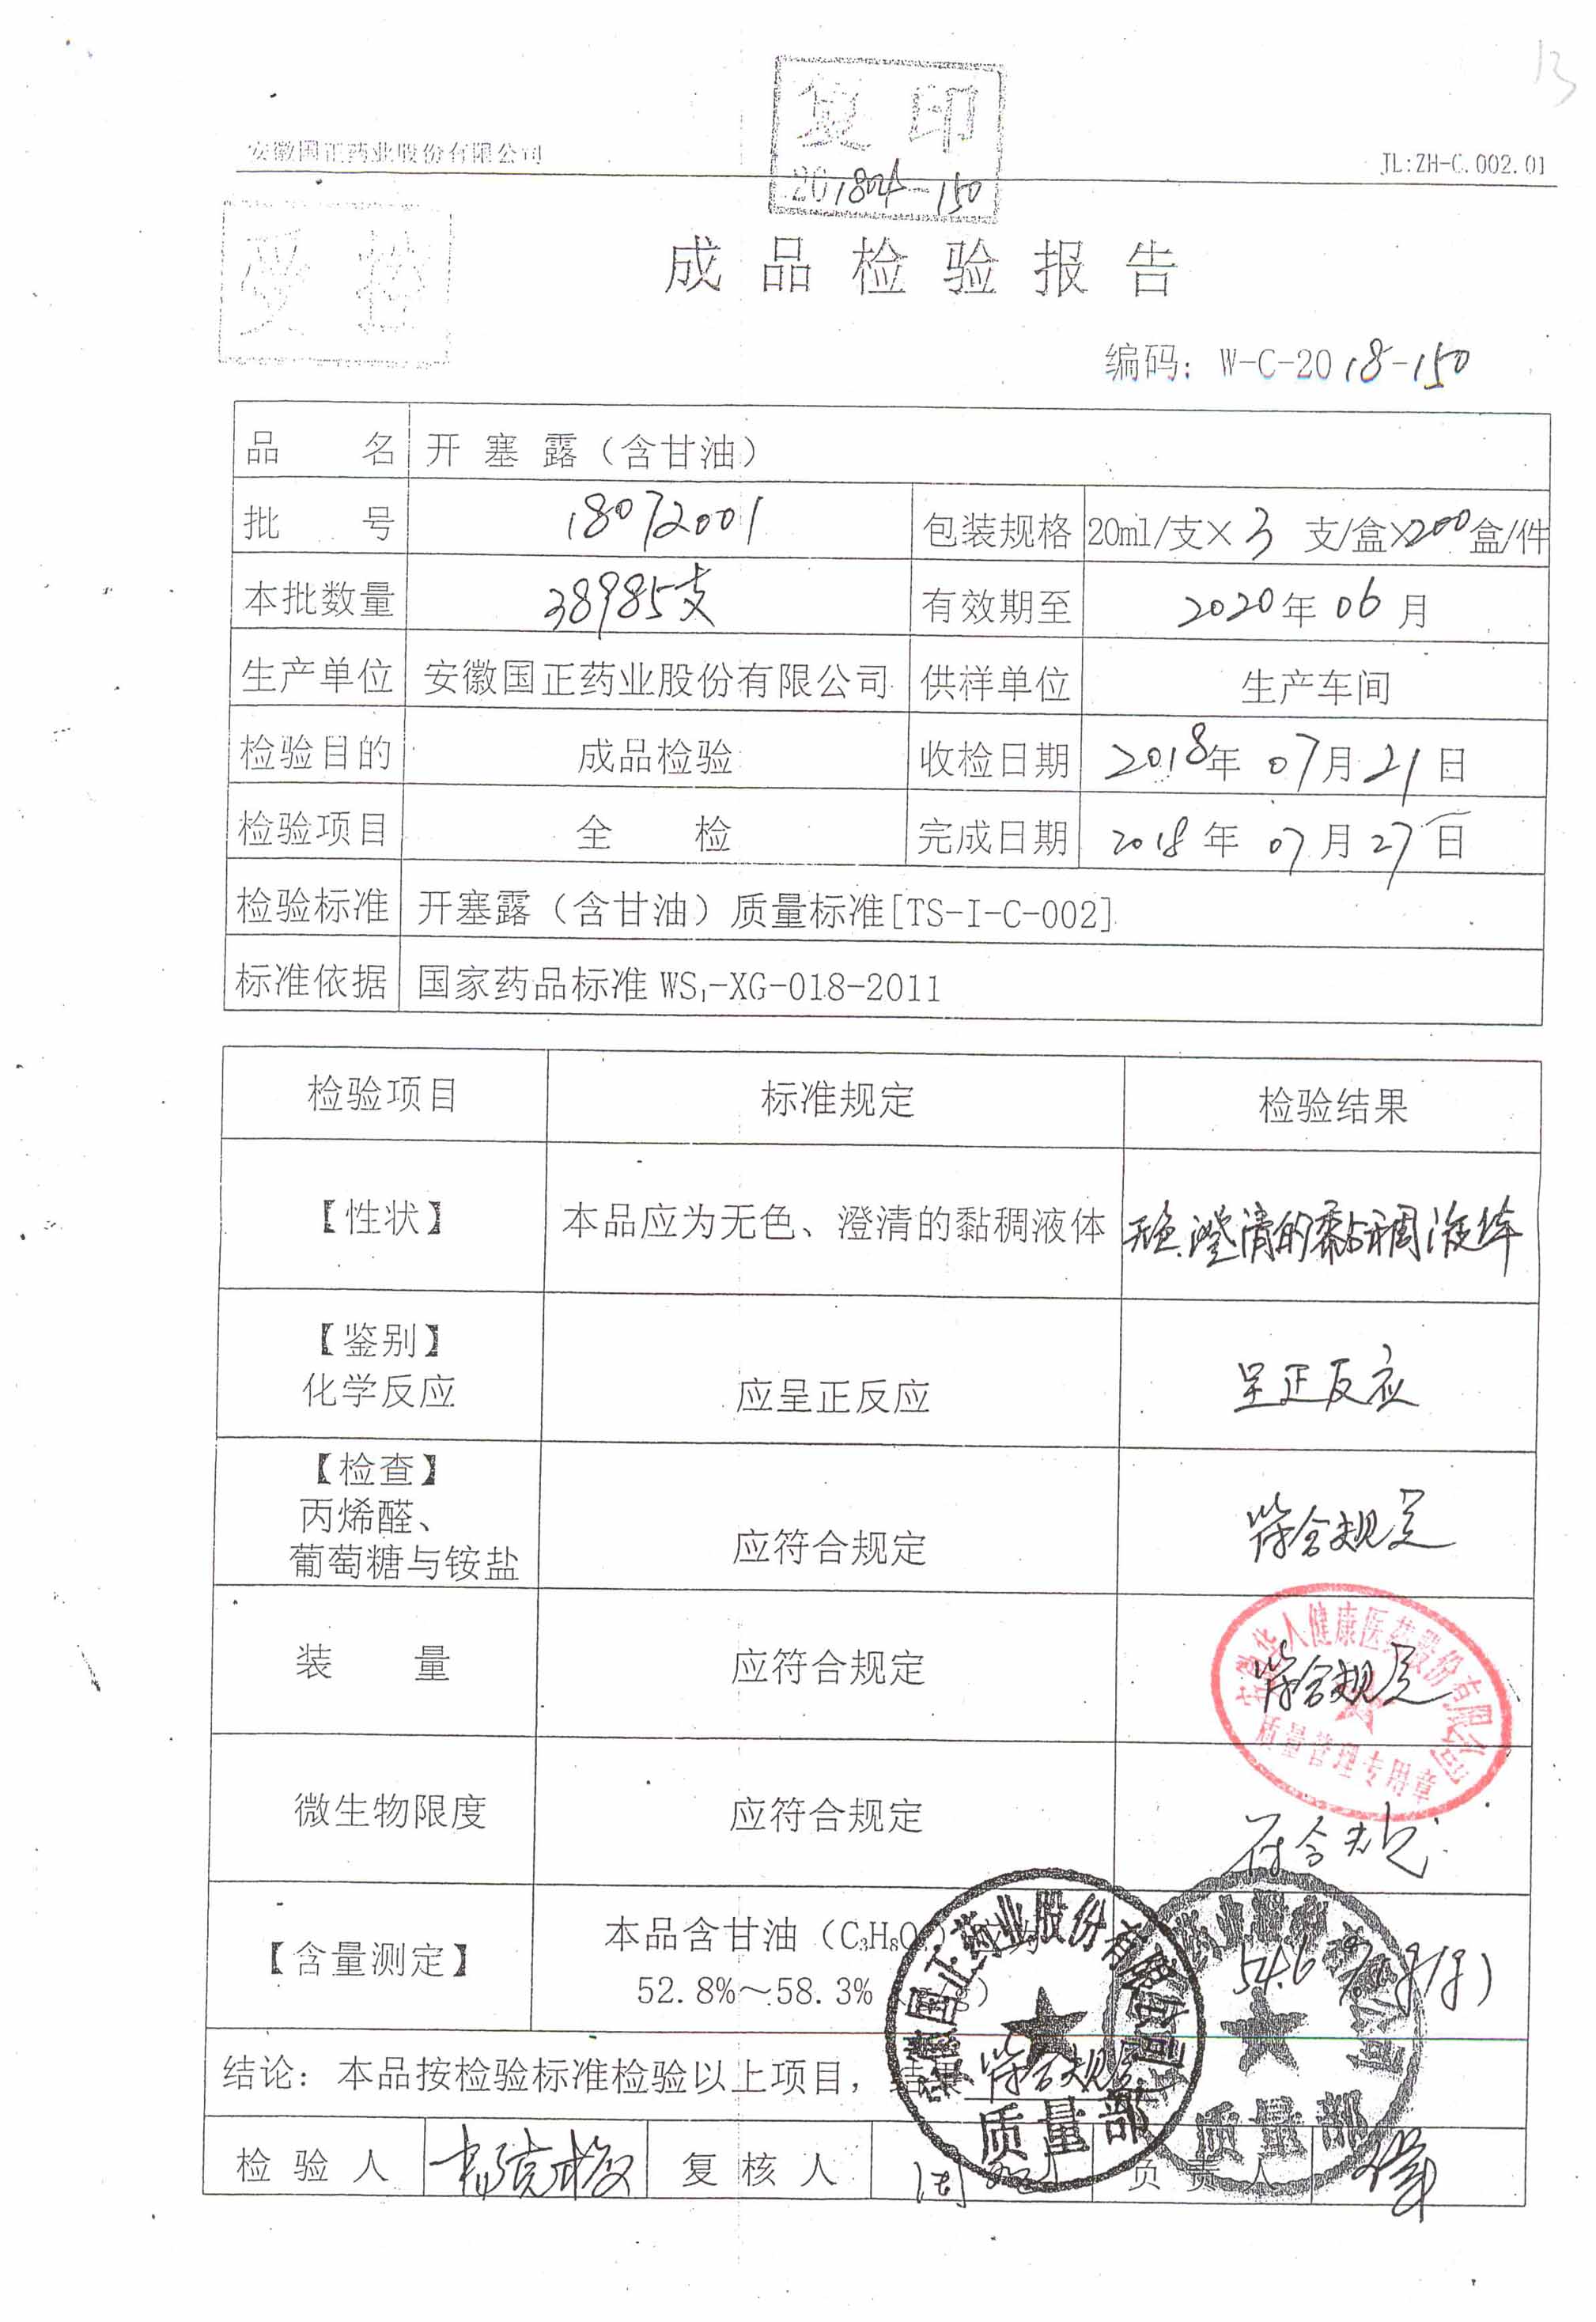 13
复印
201804-150
安徽国正药业股份有限公司
JL:ZH-C.002.01
受控
成品检验报告
编码：W-C-2018-150
品 名 开塞露（含甘油）
批 号 18072001 包装规格 20ml/支×3 支/盒×200盒/件
本批数量 38985支 有效期至 2020年06月
生产单位 安徽国正药业股份有限公司 供样单位 生产车间
检验目的 成品检验 收检日期 2018年07月21日
检验项目 全 检 完成日期 2018年07月27日
检验标准 开塞露（含甘油）质量标准[TS-I-C-002]
标准依据 国家药品标准 WS₁-XG-018-2011
检验项目 标准规定 检验结果
【性状】 本品应为无色、澄清的黏稠液体 无色、澄清的黏稠液体
【鉴别】
化学反应 应呈正反应 呈正反应
【检查】
丙烯醛、
葡萄糖与铵盐 应符合规定 符合规定
装 量 应符合规定 符合规定
安徽华人健康医药股份有限公司
质量管理专用章
微生物限度 应符合规定 符合规定
【含量测定】 本品含甘油（C₃H₈O
52.8%～58.3% 54.6%(g/g)
安徽国正药业股份有限公司
质量部
质量部
结论：本品按检验标准检验以上项目，结果 符合规定
检验人 复核人 负责人